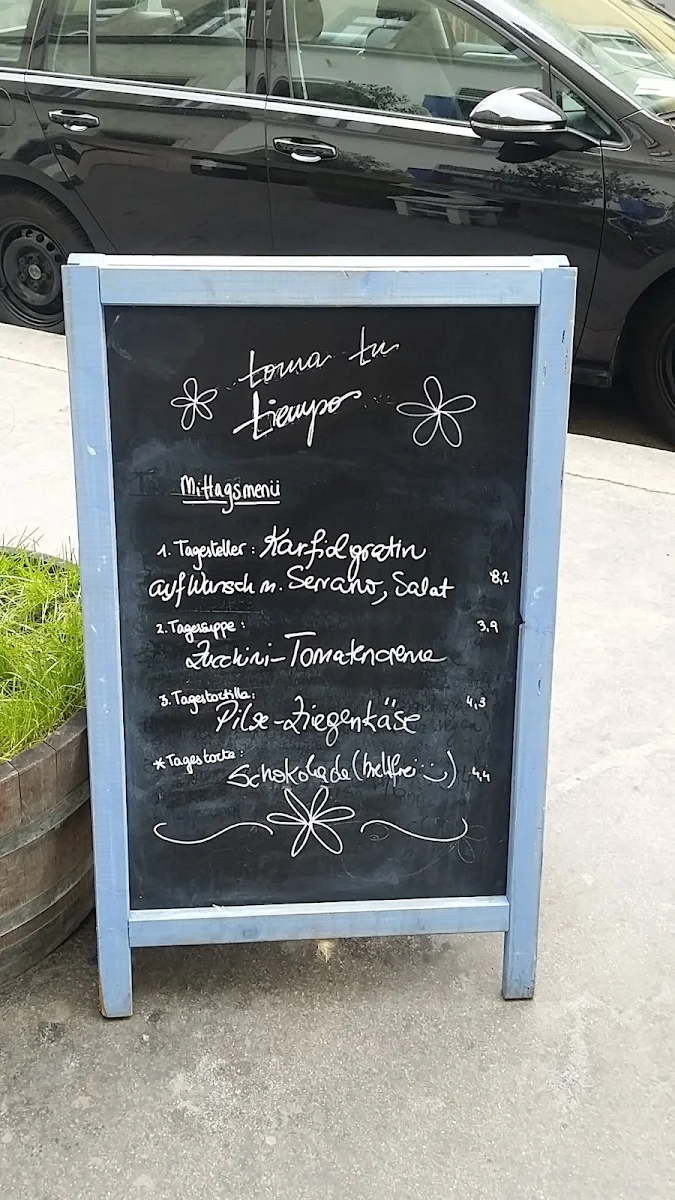 toma tu
tiempo
Mittagsmenü
1. Tagesteller: Karfiolgratin
auf Wunsch m. Serrano, Salat 8,2
2. Tagessuppe: 3,9
Zucchini-Tomatencreme
3. Tagestortilla: 4,3
Pilze-Ziegenkäse
*Tagestorte:
Schokolade (mehlfrei :-) 4,4